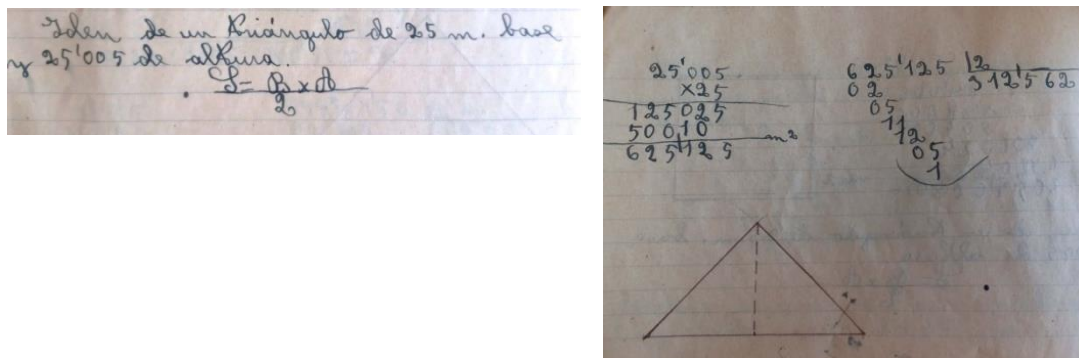 Iden de un triángulo de 25 m. base
y 25'005 de altura.
S = B x A
2
25'005
x25
125025
50010
625'125 m²
625'125 | 2
02 312'562
05
11
12
05
1